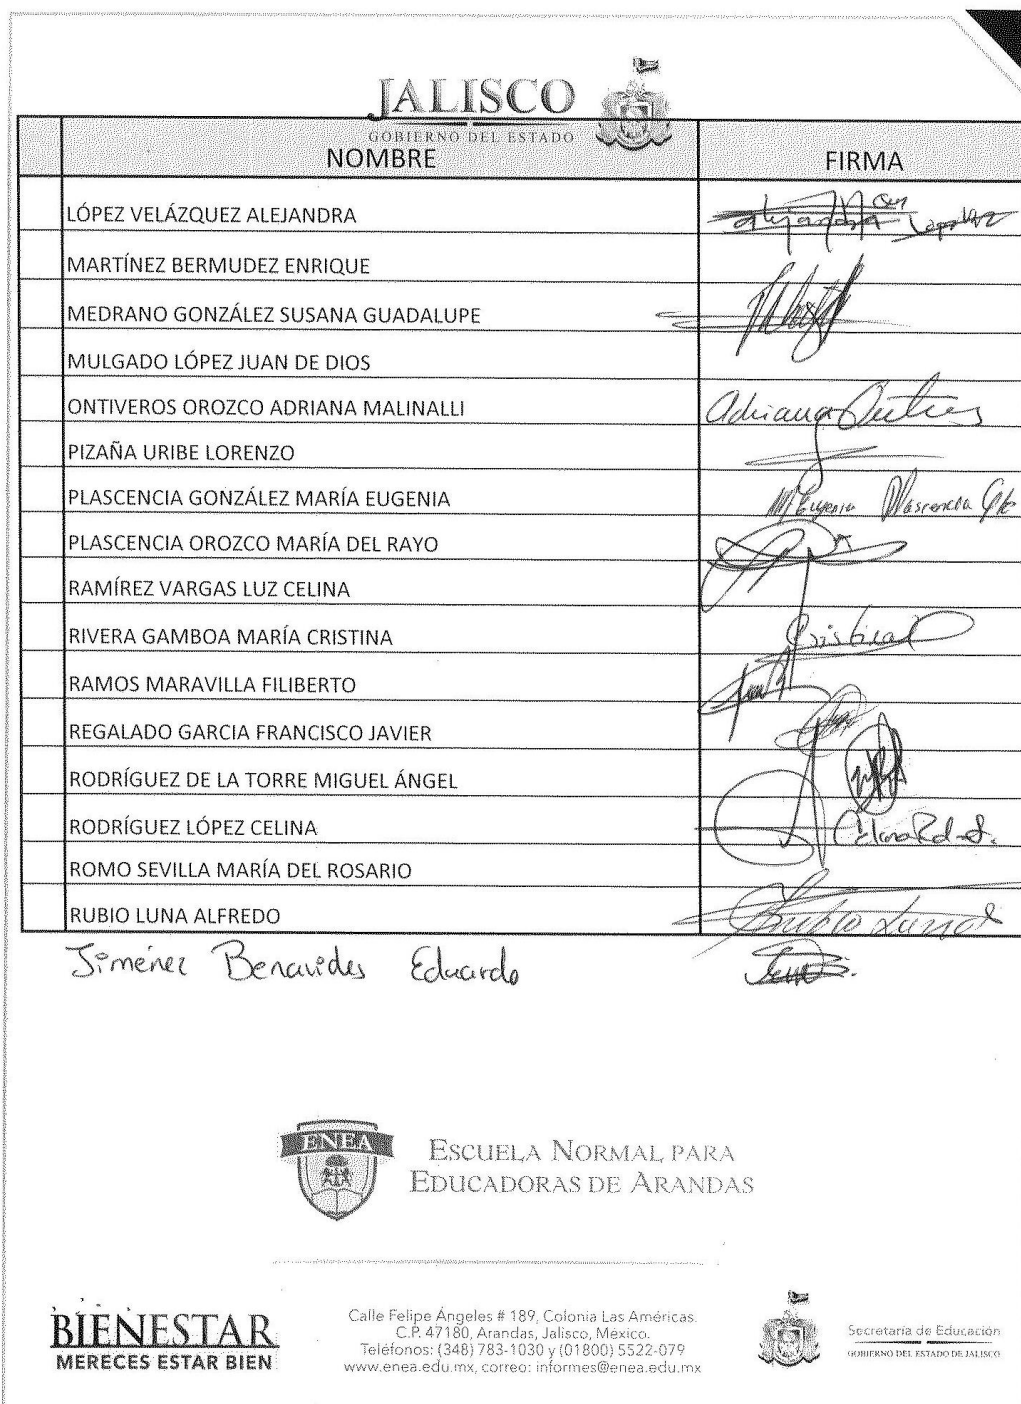 JALISCO
GOBIERNO DEL ESTADO
NOMBRE FIRMA
LÓPEZ VELÁZQUEZ ALEJANDRA
MARTÍNEZ BERMUDEZ ENRIQUE
MEDRANO GONZÁLEZ SUSANA GUADALUPE
MULGADO LÓPEZ JUAN DE DIOS
ONTIVEROS OROZCO ADRIANA MALINALLI Adriana
PIZAÑA URIBE LORENZO
PLASCENCIA GONZÁLEZ MARÍA EUGENIA Eugenia Plascencia
PLASCENCIA OROZCO MARÍA DEL RAYO
RAMÍREZ VARGAS LUZ CELINA
RIVERA GAMBOA MARÍA CRISTINA
RAMOS MARAVILLA FILIBERTO
REGALADO GARCIA FRANCISCO JAVIER
RODRÍGUEZ DE LA TORRE MIGUEL ÁNGEL
RODRÍGUEZ LÓPEZ CELINA
ROMO SEVILLA MARÍA DEL ROSARIO
RUBIO LUNA ALFREDO
Jiménez Benavides Eduardo
ENEA
ESCUELA NORMAL PARA
EDUCADORAS DE ARANDAS
BIENESTAR
MERECES ESTAR BIEN
Calle Felipe Ángeles # 189, Colonia Las Américas.
C.P. 47180, Arandas, Jalisco, México.
Teléfonos: (348) 783-1030 y (01800) 5522-079
www.enea.edu.mx, correo: informes@enea.edu.mx
Secretaría de Educación
GOBIERNO DEL ESTADO DE JALISCO